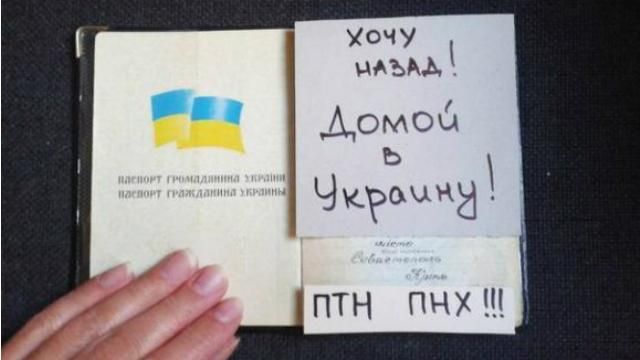 ПАСПОРТ ГРОМАДЯНИНА УКРАЇНИ
ПАСПОРТ ГРАЖДАНИНА УКРАИНЫ
ХОЧУ
НАЗАД!
Домой
в
Украину!
місто
Севастополь
ПТН ПНХ!!!